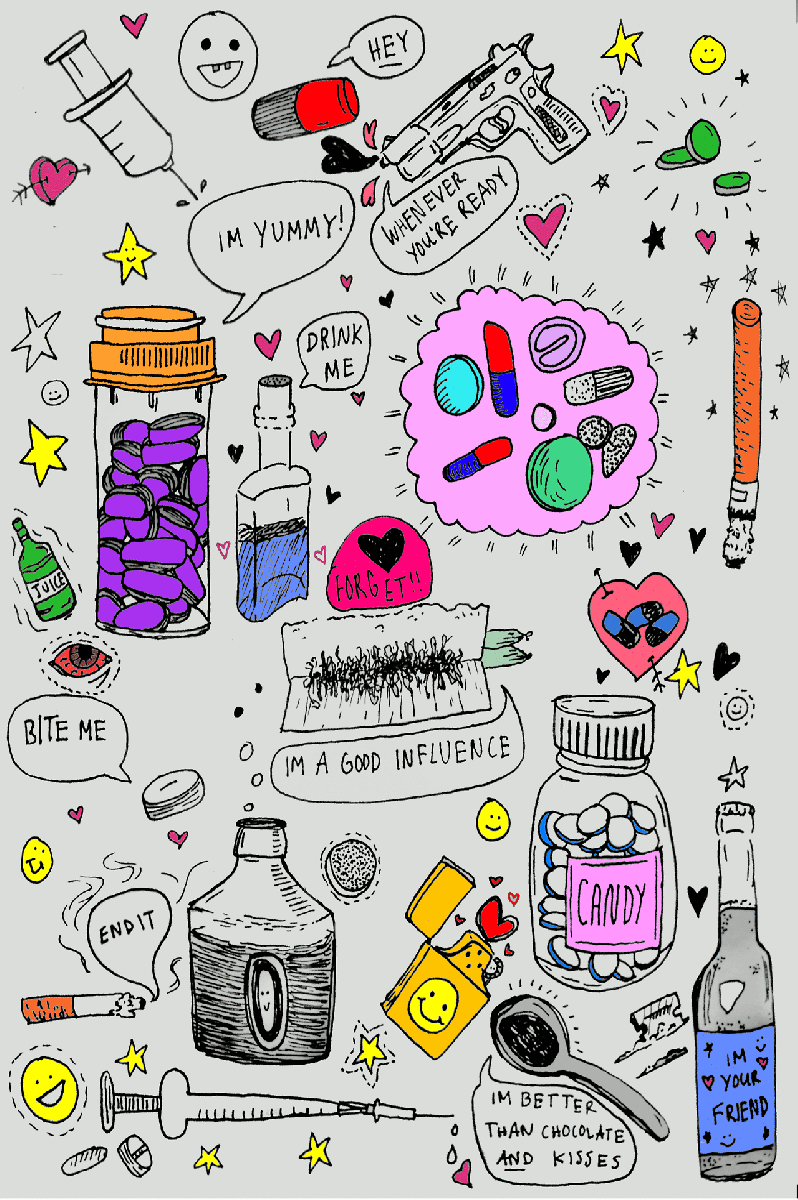 HEY
WHENEVER
YOU'RE READY
IM YUMMY!
DRINK
ME
JUICE
FORGET!!
BITE ME
IM A GOOD INFLUENCE
CANDY
END IT
IM
YOUR
FRIEND
IM BETTER
THAN CHOCOLATE
AND KISSES